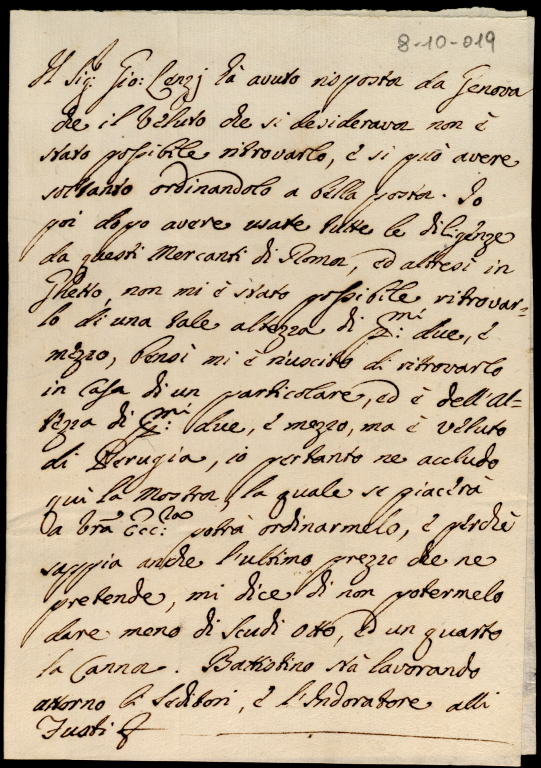 8-10-019
Il Sig.r Gio: Lenzj hà avuto risposta da Genova
che il Veluto che si desiderava non è
stato possibile ritrovarlo, e si può avere
soltanto ordinandolo a bella posta. Io
poi dopo avere usate tutte le diligenze
da questi Mercanti di Roma, ed altresì in
Ghetto, non mi è stato possibile ritrovar=
lo di una tale altezza di p:mi due, e
mezzo, bensì mi è riuscito di ritrovarlo
in Casa di un particolare, ed è dell'al=
tezza di p:mi due, e mezzo, ma è Veluto
di Perugia, io pertanto ne accludo
quì la Mostra, la quale se piacerà
a Vrà Ecc:za potrà ordinarmelo, e perchè
sappia anche l'ultimo prezzo che ne
pretende, mi dice di non potermelo
dare meno di Scudi Otto, ed un quarto
la Canna. Battistino stà lavorando
attorno li Seditori, e l'Indoratore alli
Fusti